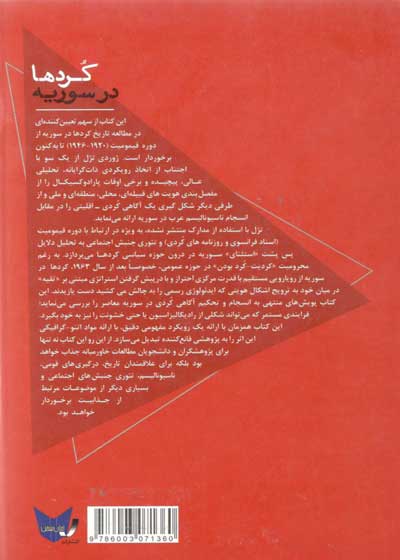 کُردها
در سوریه
این کتاب از سهم تعیین‌کننده‌ای
در مطالعه تاریخ کردها در سوریه از
دوره قیمومیت (۱۹۲۰-۱۹۴۶) تا به‌کنون
برخوردار است. ژوردی تژل از یک سو با
اجتناب از اتخاذ رویکردی ذات‌گرایانه، تحلیلی
عالی، پیچیده و برخی اوقات پارادوکسیکال را از
مفصل‌بندی هویت های قبیله‌ای، محلی، منطقه‌ای و ملی و از
طرفی دیگر شکل گیری یک آگاهی کردی ـ اقلیتی را در مقابل
انسجام ناسیونالیسم عرب در سوریه ارائه می‌نماید.
تژل با استفاده از مدارک منتشر نشده، به ویژه در ارتباط با دوره قیمومیت
(اسناد فرانسوی و روزنامه های کُردی) و تئوری جنبش اجتماعی به تحلیل دلایل
پس پشت «استثنای» سوریه در درون حوزه سیاسی کردها می‌پردازد. به رغم
محرومیت «کردیت، کُرد بودن» در حوزه عمومی، خصوصا بعد از سال ۱۹۶۳، کردها در
سوریه از رویارویی مستقیم با قدرت مرکزی احتراز و با در پیش گرفتن استراتژی مبتنی بر «تقیه»
در میان خود به ترویج اشکال هویتی که ایدئولوژی رسمی را به چالش می کشید دست یازیدند. این
کتاب پویش‌های منتهی به انسجام و تحکیم آگاهی کُردی در سوریه معاصر را بررسی می‌نماید؛
فرایندی مستمر که می‌تواند شکلی از رادیکالیزاسیون یا حتی خشونت را نیز به خود بگیرد.
این کتاب همزمان با ارائه یک رویکرد مفهومی دقیق، با ارائه مواد اتنو-گرافیکی
این اثر را به پژوهشی قانع‌کننده تبدیل می‌سازد. از این رو این کتاب نه تنها
برای پژوهشگران و دانشجویان مطالعات خاورمیانه جذاب خواهد
بود بلکه برای علاقمندان تاریخ، درگیری‌های قومی،
ناسیونالیسم، تئوری جنبش‌های اجتماعی و
بسیاری دیگر از موضوعات مرتبط
از جذابیت برخوردار
خواهد بود.
9 786003 071360